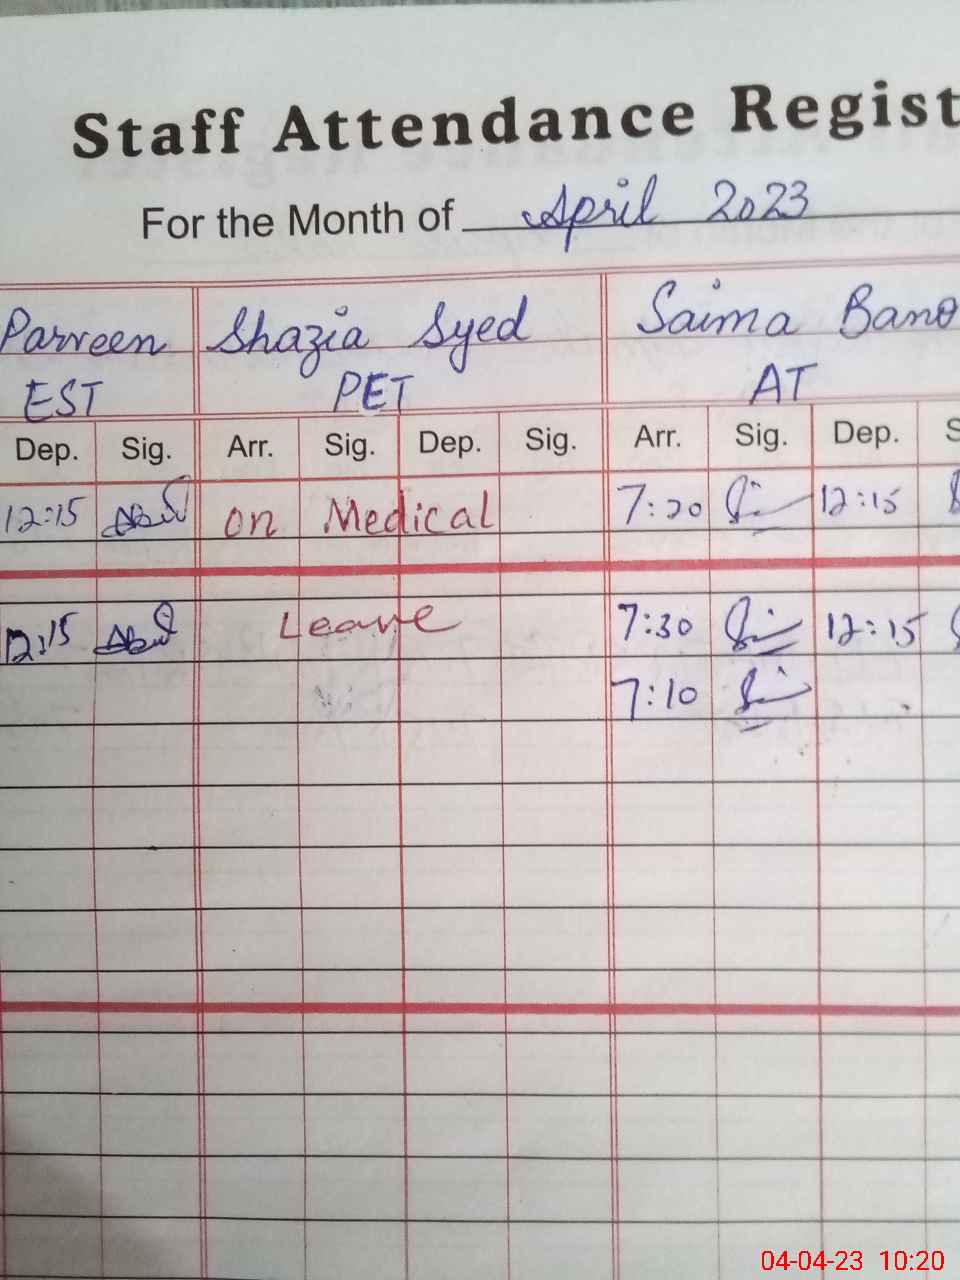 Staff Attendance Regist
For the Month of April 2023
Parveen Shazia Syed Saima Bano
EST PET AT
Dep. Sig. Arr. Sig. Dep. Sig. Arr. Sig. Dep. S
12:15 on Medical 7:20 12:15
12:15 Leave 7:30 12:15
7:10
04-04-23 10:20